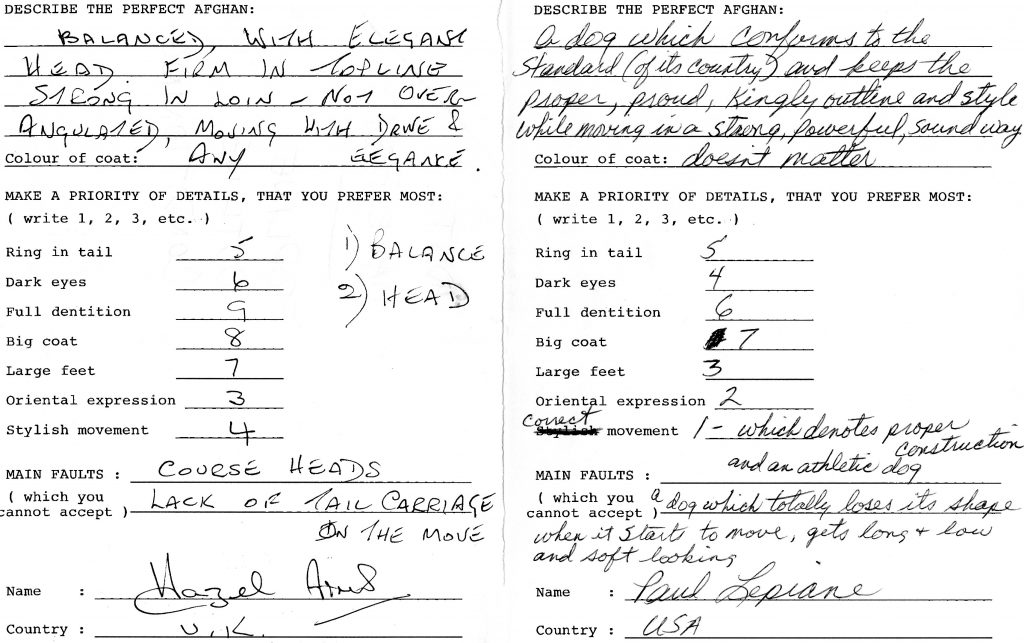 DESCRIBE THE PERFECT AFGHAN:
BALANCED, WITH ELEGANT
HEAD. FIRM IN TOPLINE
STRONG IN LOIN - NOT OVER-
ANGULATED, MOVING WITH DRIVE &
Colour of coat: ANY ELEGANCE.
MAKE A PRIORITY OF DETAILS, THAT YOU PREFER MOST:
( write 1, 2, 3, etc. )
Ring in tail 5
Dark eyes 6
Full dentition 9
Big coat 8
Large feet 7
Oriental expression 3
Stylish movement 4
1) BALANCE
2) HEAD
MAIN FAULTS : COURSE HEADS
( which you
cannot accept ) LACK OF TAIL CARRIAGE
ON THE MOVE
Name : Hazel
Country : U.K.
DESCRIBE THE PERFECT AFGHAN:
A dog which conforms to the
standard (of its country) and keeps the
proper, proud, Kingly outline and style
while moving in a strong, powerful, sound way
Colour of coat: doesn't matter
MAKE A PRIORITY OF DETAILS, THAT YOU PREFER MOST:
( write 1, 2, 3, etc. )
Ring in tail 5
Dark eyes 4
Full dentition 6
Big coat 7
Large feet 3
Oriental expression 2
Correct
Stylish movement 1 - which denotes proper
construction
and an athletic dog
MAIN FAULTS :
( which you
cannot accept ) a dog which totally loses its shape
when it starts to move, gets long + low
and soft looking
Name : Paul Lepiane
Country : USA